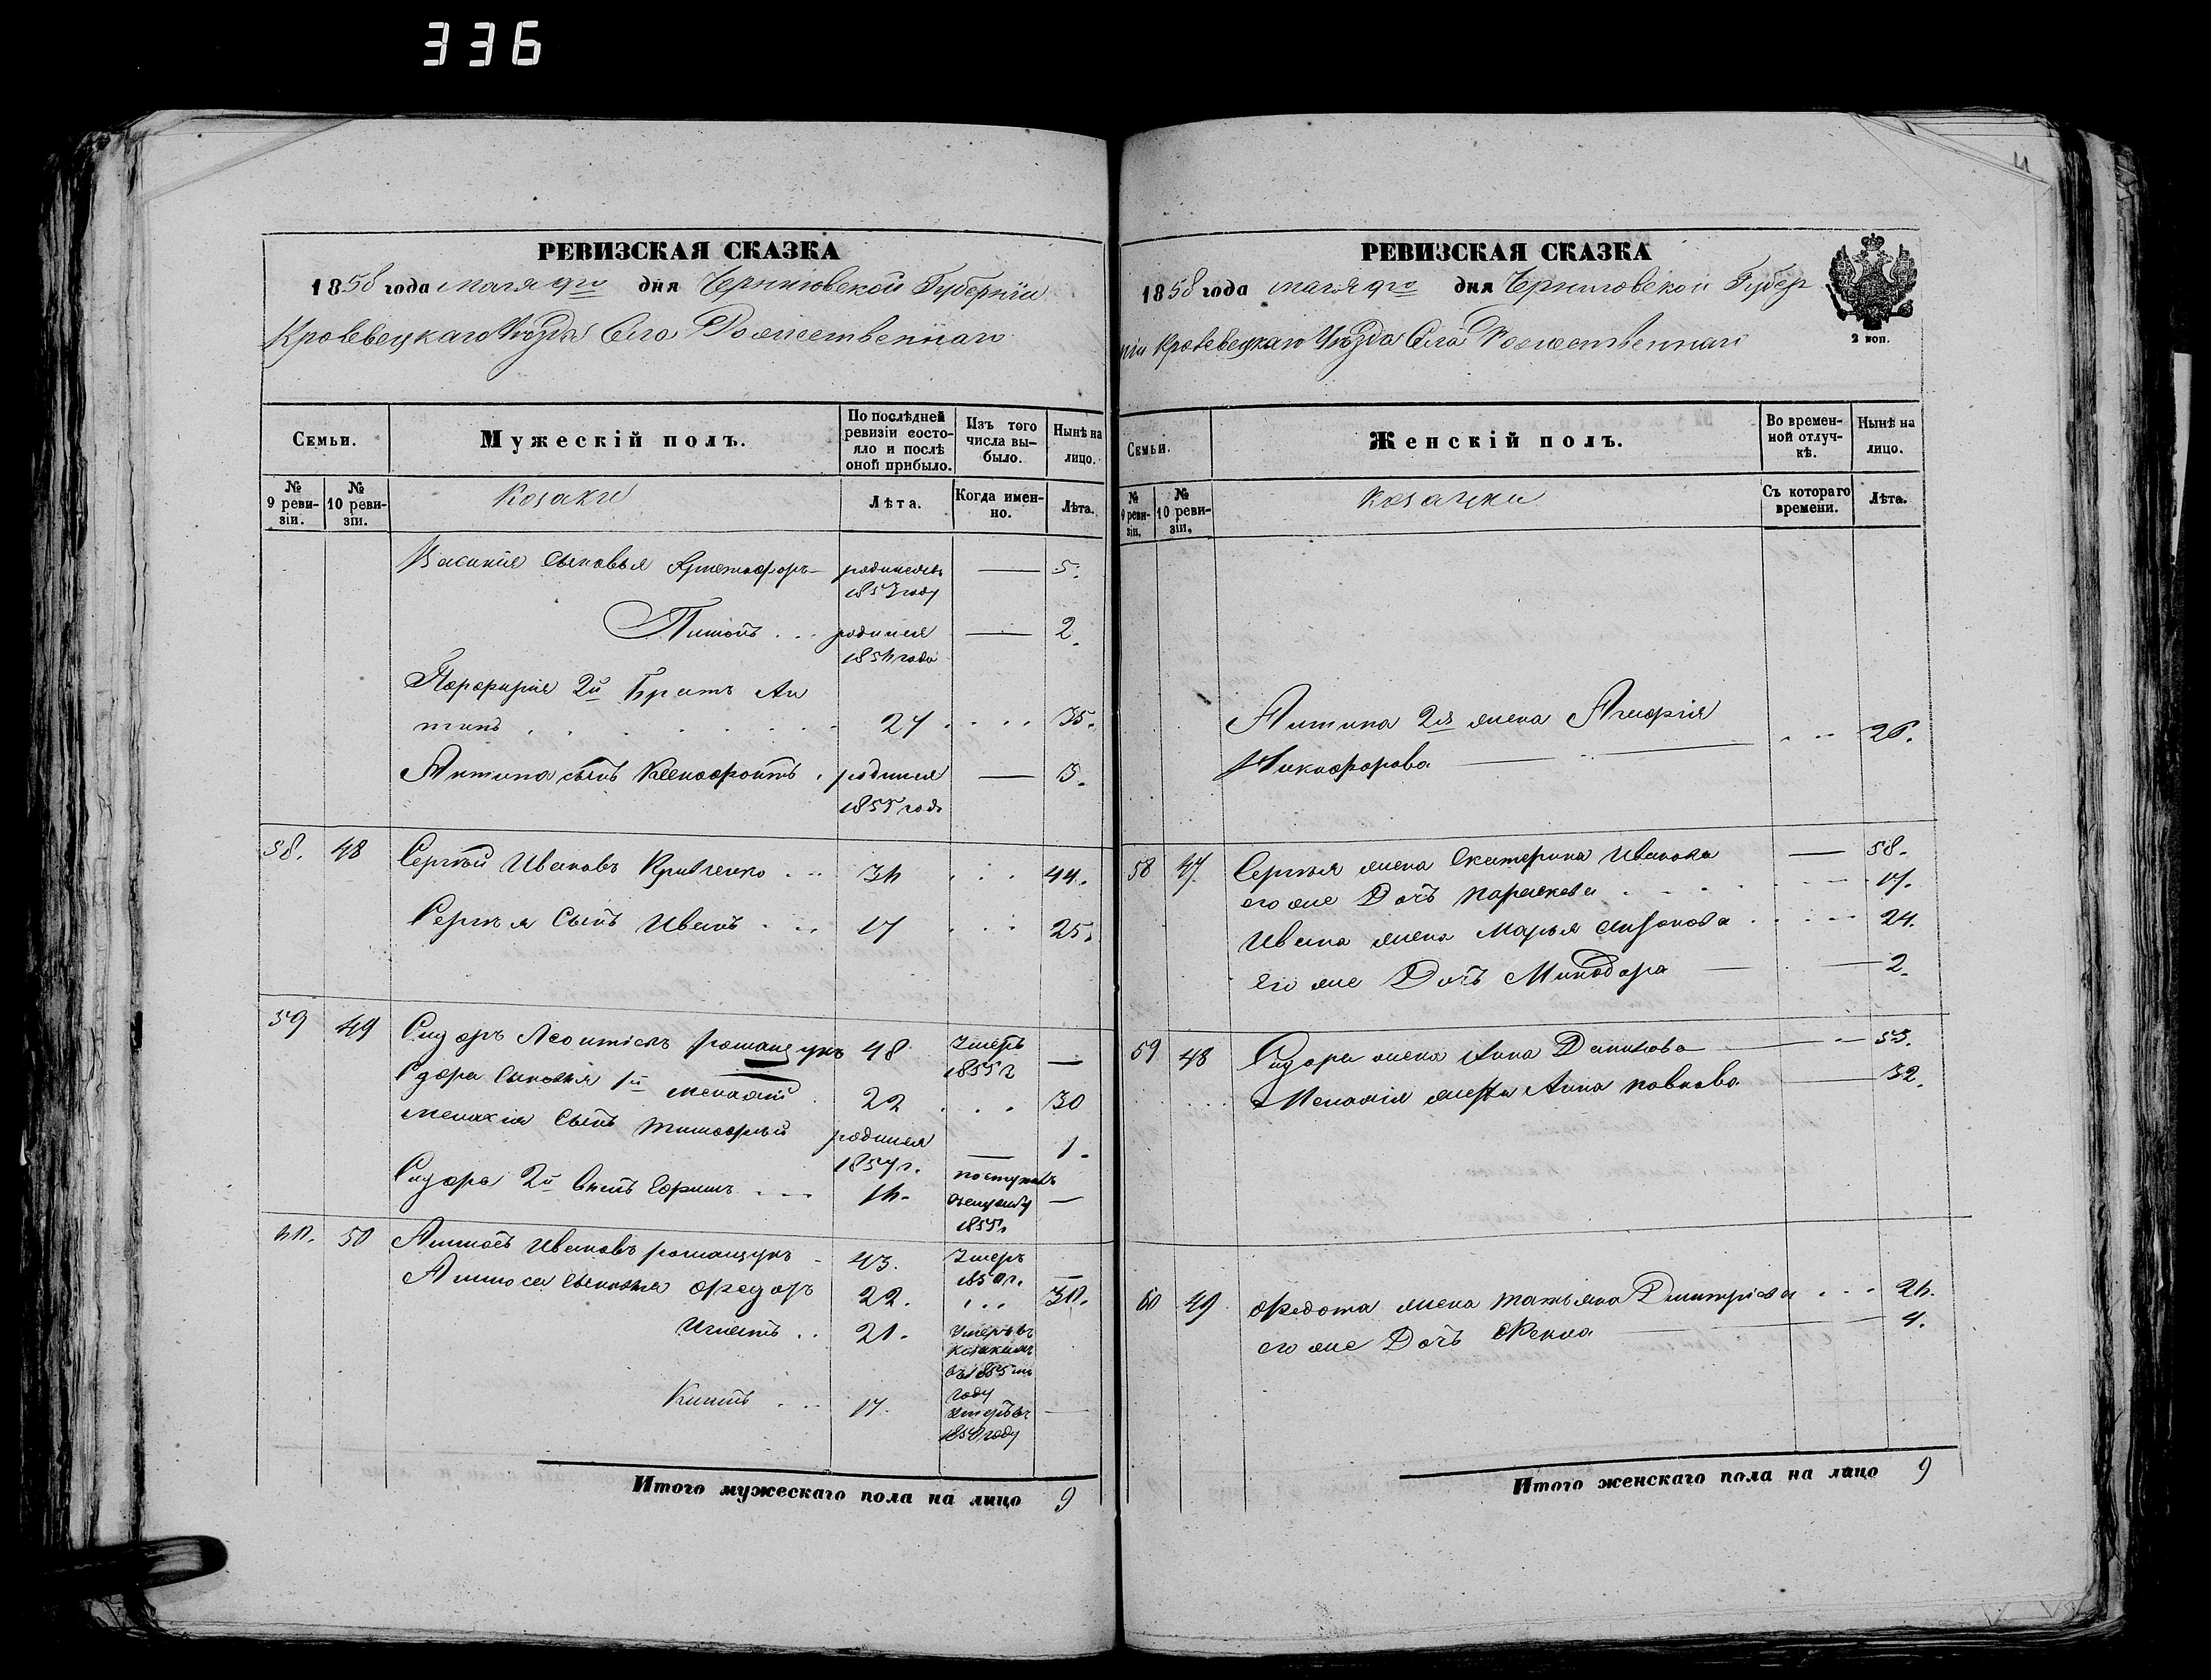 336
РЕВИЗСКАЯ СКАЗКА
1858 года мая 9го дня Черниговской Губерніи
Кролевецкаго Уѣзда Села Рожественнаго
Семьи.
Мужескій полъ.
По послѣдней ревизіи состояло и послѣ оной прибыло.
Изъ того числа выбыло.
Нынѣ на лицо.
№ 9 ревизіи.
№ 10 ревизіи.
Козаки
Лѣта.
Когда именно.
Лѣта.
Василія сыновья родился 1853 году — 5.
родился — 2.
Порфирія 2й братъ Антипъ 27 35.
Антипа сынъ Ксенофонтъ родился 1855 года — 3.
58. 48 Сергѣй Ивановъ Кривченко 36 44.
Сергѣя Сынъ Иванъ 17 25.
59 49 Сидоръ Леонтіевъ Ромащукъ 48 Умеръ 1855 г —
Сидора Сыновья 1й 22 30
Сынъ Тимофѣй родился 1857 г. — 1.
Сидора 2й Сынъ Ефимъ 16. поступилъ 1855 г. —
60. 50 Ивановъ Ромащукъ 43. Умеръ 1850 г. —
Сыновья Федоръ 22. 30.
Игнатъ 21. Умеръ въ 1855 году
17. Умеръ въ году —
Итого мужескаго пола на лицо 9
РЕВИЗСКАЯ СКАЗКА
1858 года мая 9го дня Черниговской Губер
ніи Кролевецкаго Уѣзда Села Рожественнаго
2 коп.
Семьи.
Женскій полъ.
Во временной отлучкѣ.
Нынѣ на лицо.
№ 9 ревизіи.
№ 10 ревизіи.
Козачки
Съ котораго времени.
Лѣта.
Антипа 2я жена
Никифорова 26.
58 47 Сергѣя жена Екатерина Иванова — 58.
его же Дочь Параскева 17.
Ивана жена Марья 24.
Его же Дочь Минодора — 2.
59 48 Сидора жена Анна Данилова — 53.
жена Анна Павлова — 32.
60 49 Федота жена Татьяна Дмитріева 26.
его же Дочь Фекла — 4.
Итого женскаго пола на лицо 9